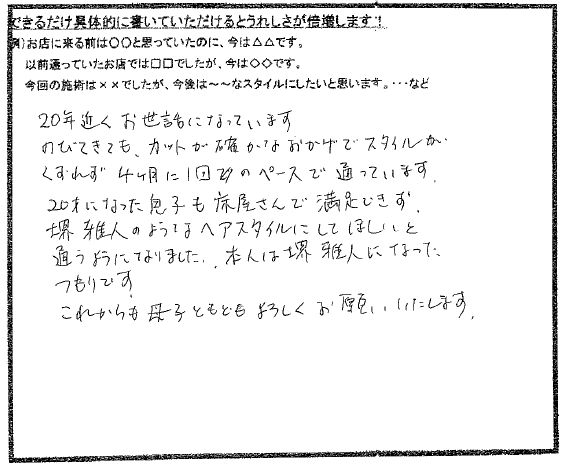 できるだけ具体的に書いていただけるとうれしさが倍増します!
例)お店に来る前は○○と思っていたのに、今は△△です。
以前通っていたお店では□□でしたが、今は◇◇です。
今回の施術は××でしたが、今後は~~なスタイルにしたいと思います。・・・など
20年近くお世話になっています
のびてきても、カットが確かなおかげでスタイルが
くずれず 4ヶ月に1回のペースで通っています。
20才になった息子も床屋さんで満足できず、
堺雅人のようなヘアスタイルにしてほしいと
通うようになりました。本人は堺雅人になった
つもりです。
これからも母子ともどもよろしくお願いいたします。